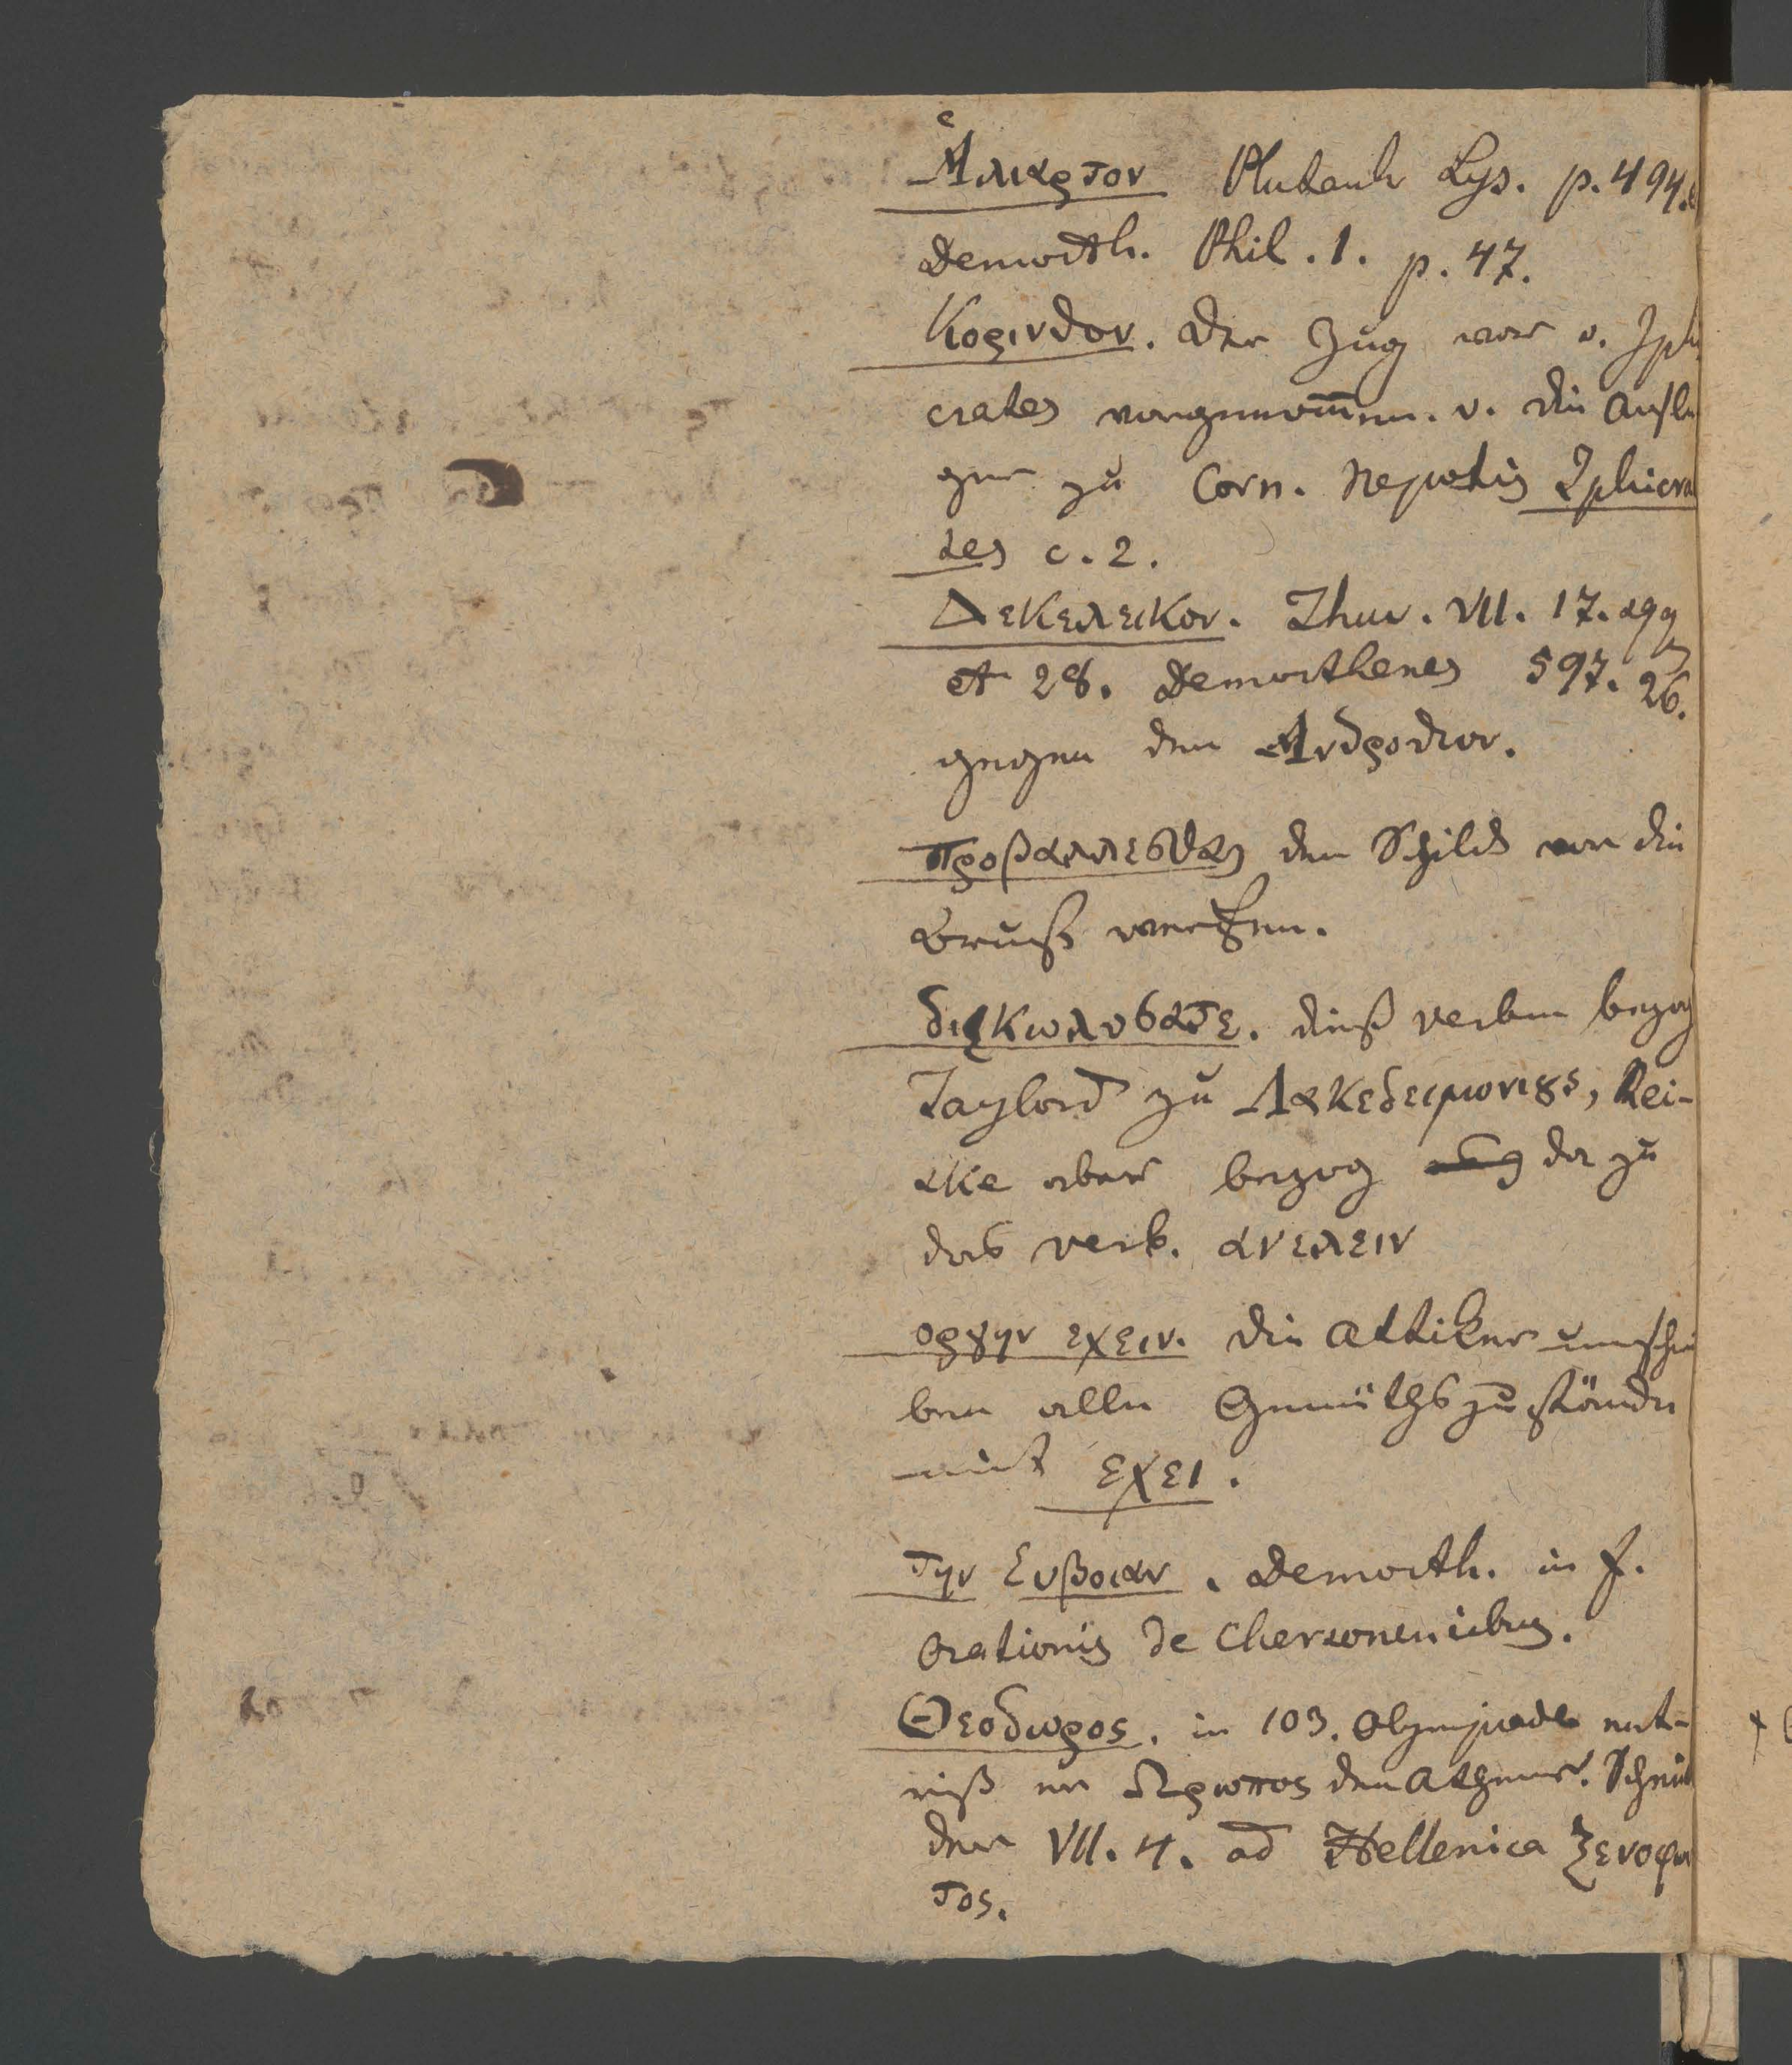 Ἁλιαρτον Plutarch Lys. p. 494.
Demosth. Phil. 1. p. 47.
Κορινθον. Der Zug war v. Iphi
crates vorgenom̅en. v. die Ausle
ger zu Corn. Nepotis Iphicra
tes c. 2.
Δεκελεικον. Thuc. VII. 17. sqq
et 28. Demosthenes 597. 26.
gegen den Ανδροτιον.
προβαλλεσθαι den Schild vor die
Brust werfen.
διακωλυσατε. dieß verbum bezog
Taylord zu Λακεδειμονιους, Rei-
ske aber bezog da zu
das verb. ανελειν
οργην εχειν. die Attiker umschrei
ben alle Gemüthszustände
mit εχει.
την Ευβοιαν. Demosth. in f.
Orationis de Chersonensibus.
Θεοδωρος. in 103. Olympiade ent-
riß er Ωρωπος den Athener. Schnei
der VII. 4. ad Hellenica Ξενοφω
τος.